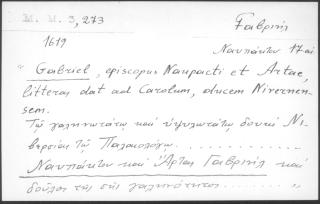 M. M. 3, 273
Γαβριήλ
1619
Ναυπάκτου 17 αἰ
" Gabriel, episcopus Naupacti et Artae,
litteras dat ad Carolum, ducem Nivernen-
sem.
Τῷ γαληνωτάτῳ καὶ ὑψηλωτάτῳ δουκὶ Νι-
βερσίας τῷ Παλαιολόγῳ..........
Ναυπάκτου καὶ Ἄρτης Γαβριὴλ καὶ
δοῦλος τῆς σῆς γαληνότητος.......... "